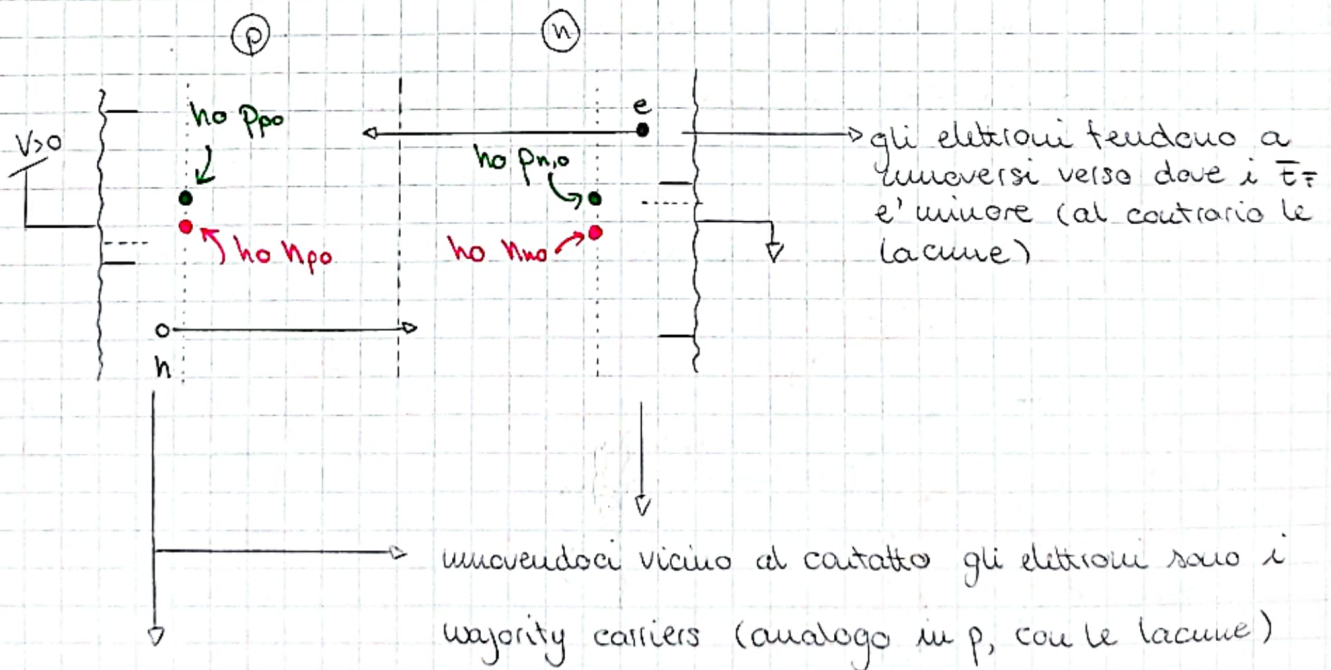 p
n
V>0
ho Ppo
ho npo
e
ho Pn,o
ho nno
h
gli elettroni tendono a
muoversi verso dove i EF
e' minore (al contrario le
lacune)
muovendoci vicino al contatto gli elettroni sono i
majority carriers (analogo in p, con le lacune)